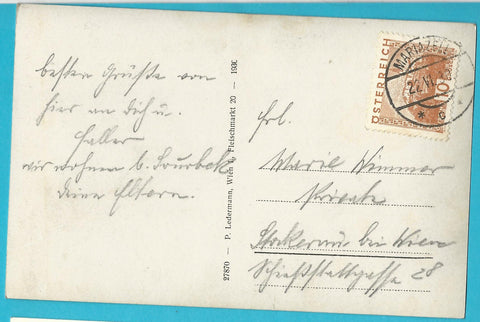 besten Grüße von
hier an dich u.
wir wohnen b.
deine Eltern.
27870 — P. Ledermann, Wien I., Fleischmarkt 20 — 1930
ÖSTERREICH
10
MARIAZELL
Frl.
Marie Wimmer
Private
Stockerau bei Wien
Schießstattgasse 28